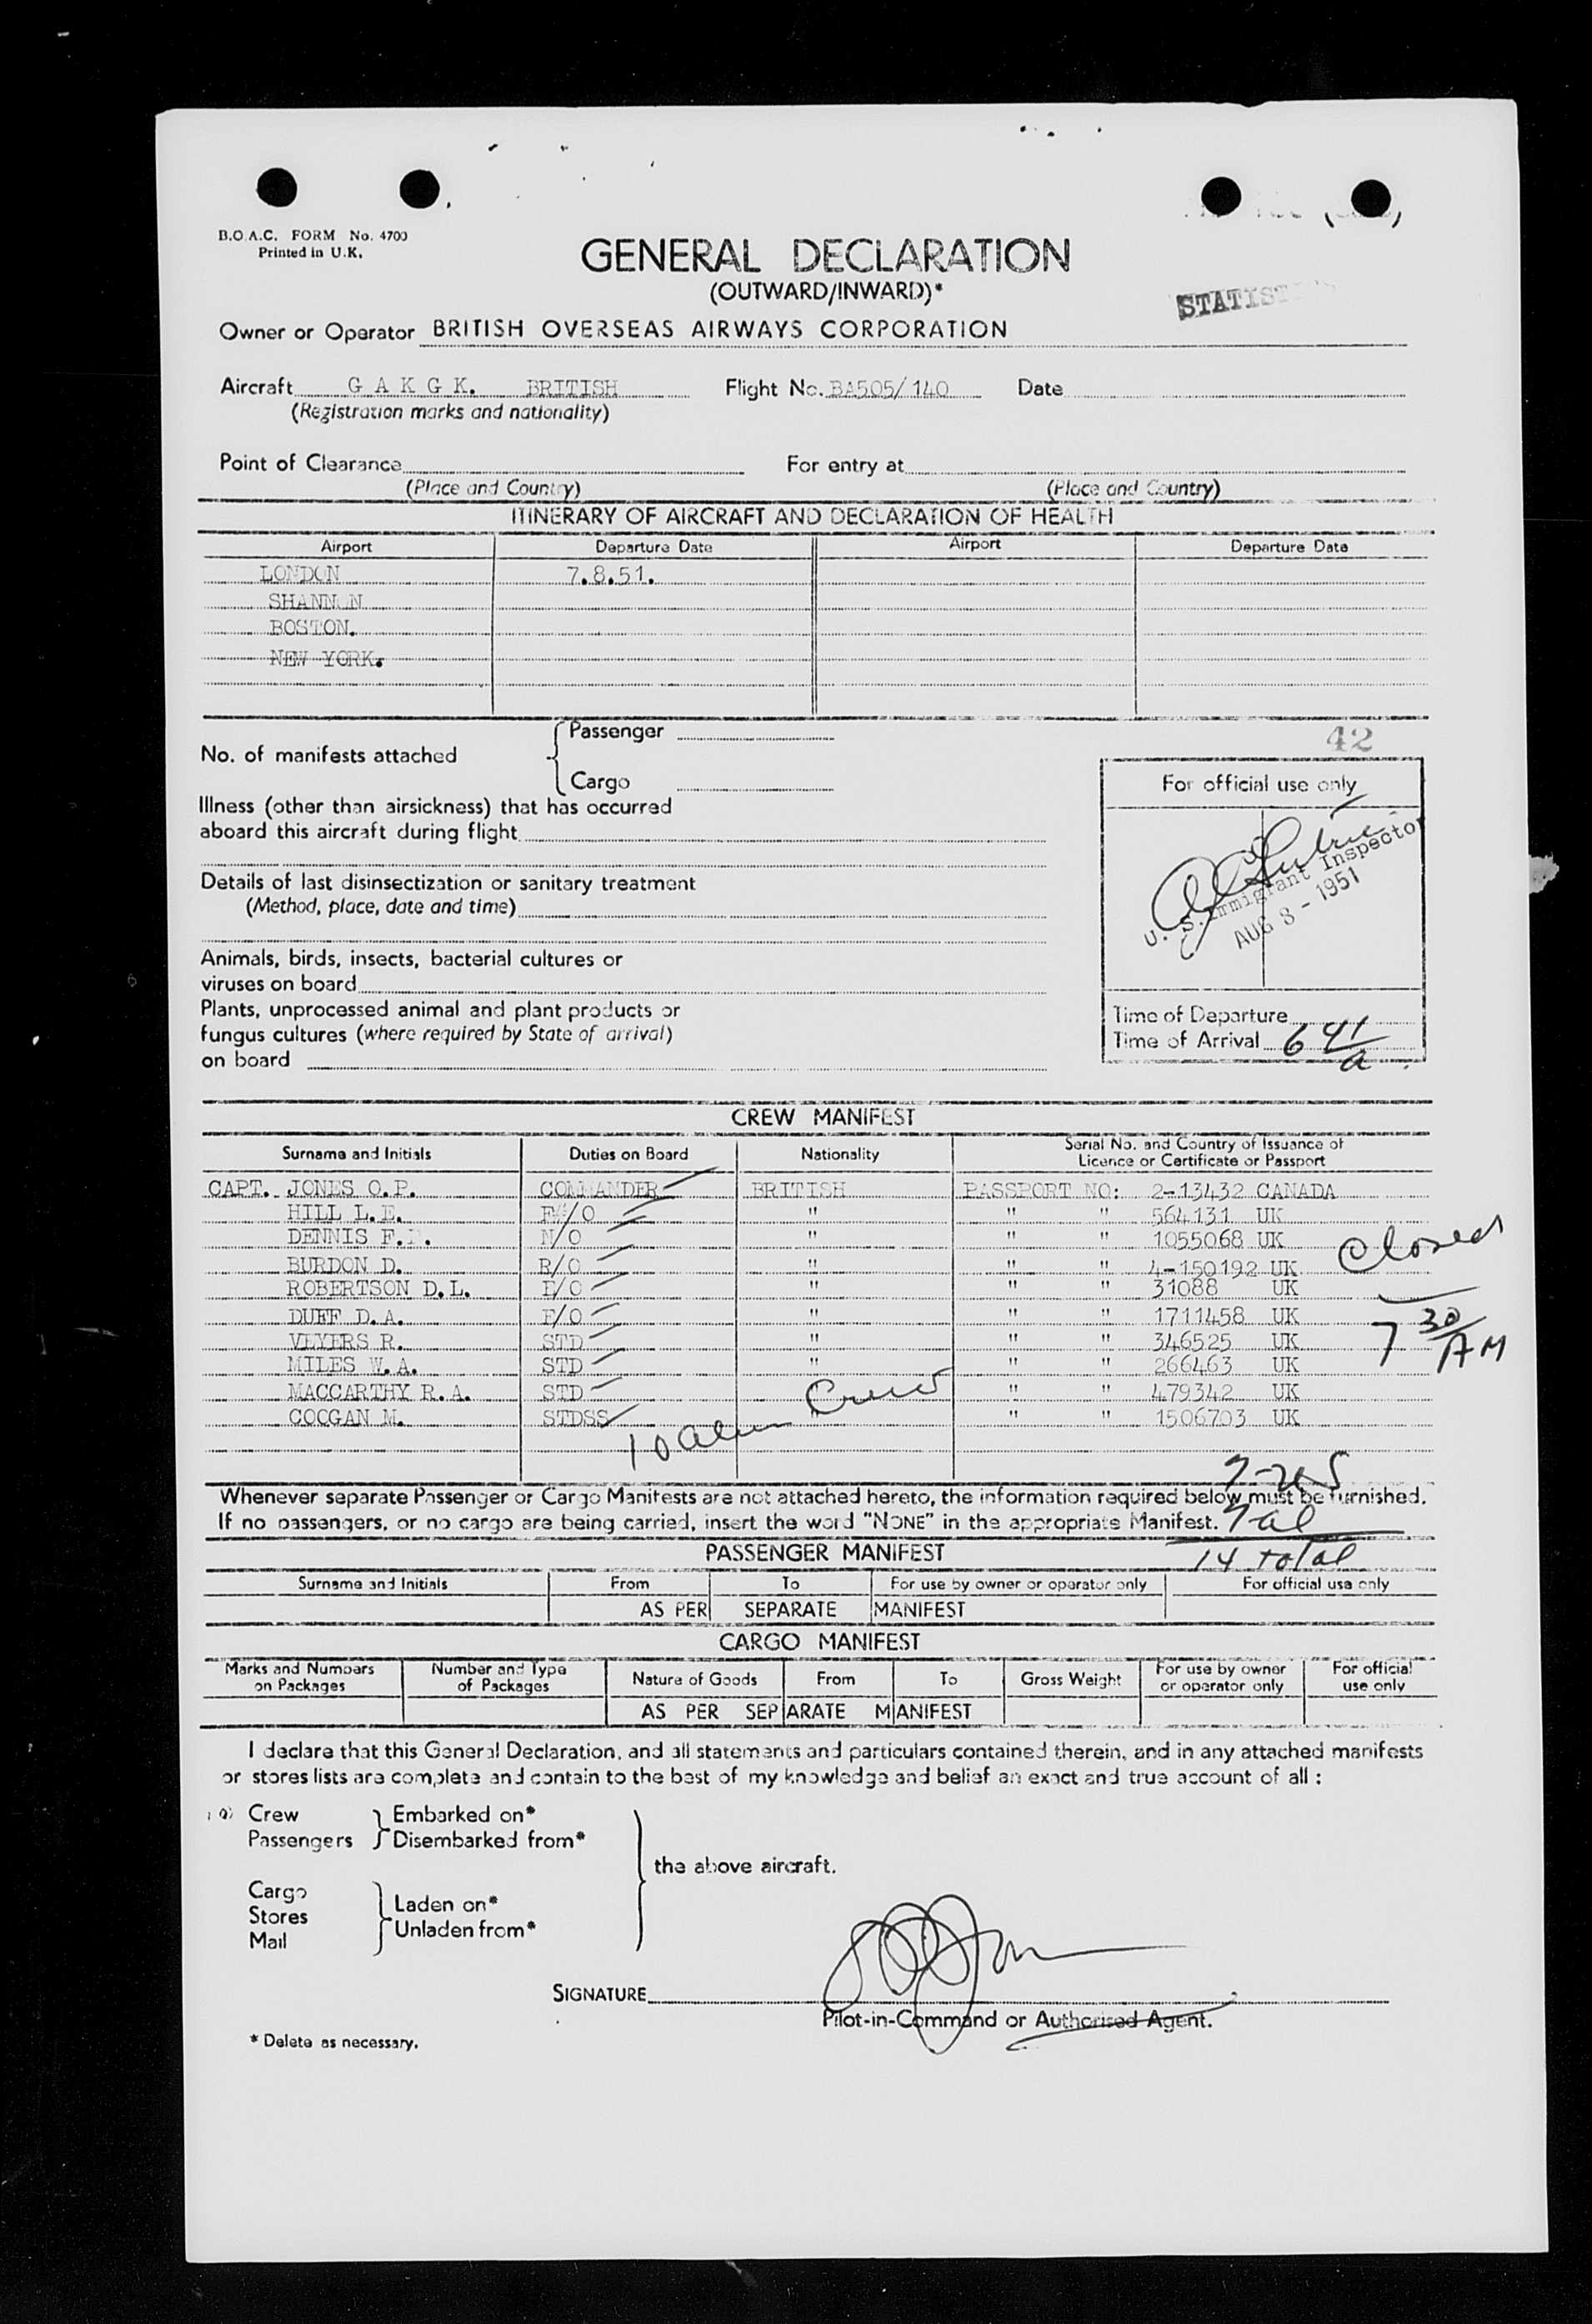 B.O.A.C. FORM No. 4700
Printed in U.K.
GENERAL DECLARATION
(OUTWARD/INWARD)*
STATIST
Owner or Operator BRITISH OVERSEAS AIRWAYS CORPORATION
Aircraft G A K G K. BRITISH Flight No. BA505/140 Date
(Registration marks and nationality)
Point of Clearance For entry at
(Place and Country) (Place and Country)
ITINERARY OF AIRCRAFT AND DECLARATION OF HEALTH
Airport Departure Date Airport Departure Date
LONDON 7.8.51.
SHANNON
BOSTON.
NEW YORK.
No. of manifests attached { Passenger
Cargo
42
For official use only
Illness (other than airsickness) that has occurred
aboard this aircraft during flight
Details of last disinsectization or sanitary treatment
(Method, place, date and time)
U. S. Immigrant Inspector
AUG 8 - 1951
Animals, birds, insects, bacterial cultures or
viruses on board
Plants, unprocessed animal and plant products or
fungus cultures (where required by State of arrival)
on board
Time of Departure
Time of Arrival 6 41/a
CREW MANIFEST
Surname and Initials Duties on Board Nationality Serial No. and Country of Issuance of Licence or Certificate or Passport
CAPT. JONES O.P. COMMANDER BRITISH PASSPORT NO: 2-13432 CANADA
HILL L.E. /O " " " 564131 UK
DENNIS F. N/O " " " 1055068 UK
BURDON D. R/O " " " 4-150192 UK
ROBERTSON D.L. E/O " " " 31088 UK
DUFF D.A. F/O " " " 1711458 UK
VEYERS R. STD " " " 346525 UK
MILES W.A. STD " " " 266463 UK
MACCARTHY R.A. STD " " 479342 UK
COOGAN M. STDSS " " " 1506703 UK
Closed
7 30/AM
10 alien Crew
7-US
7 al
14 total
Whenever separate Passenger or Cargo Manifests are not attached hereto, the information required below must be furnished.
If no passengers, or no cargo are being carried, insert the word "NONE" in the appropriate Manifest.
PASSENGER MANIFEST
Surname and Initials From To For use by owner or operator only For official use only
AS PER SEPARATE MANIFEST
CARGO MANIFEST
Marks and Numbers on Packages Number and Type of Packages Nature of Goods From To Gross Weight For use by owner or operator only For official use only
AS PER SEPARATE MANIFEST
I declare that this General Declaration, and all statements and particulars contained therein, and in any attached manifests
or stores lists are complete and contain to the best of my knowledge and belief an exact and true account of all :
Crew } Embarked on*
Passengers } Disembarked from*
the above aircraft.
Cargo
Stores } Laden on*
Mail } Unladen from*
SIGNATURE
Pilot-in-Command or Authorised Agent.
* Delete as necessary.